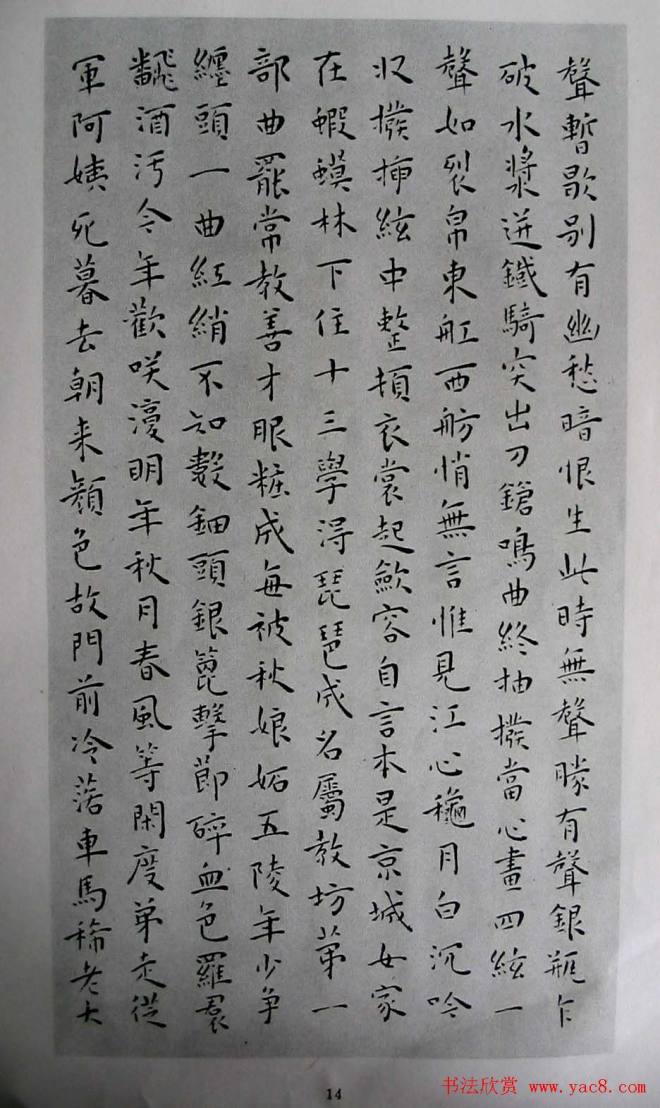 聲暫歇別有幽愁暗恨生此時無聲勝有聲銀瓶乍
破水漿迸鐵騎突出刀鎗鳴曲終抽撥當心畫四絃一
聲如裂帛東舡西舫悄無言惟見江心龝月白沉吟
収撥揷絃中整頓衣裳起歛容自言本是京城女家
在蝦蟆林下住十三學淂琵琶成名屬教坊苐一
部曲罷常教善才眼粧成每被秋娘妬五陵年少争
纏頭一曲紅綃不知數鈿頭銀篦擊節碎血色羅裙
飜酒汚今年歡咲瀀明年秋月春風等閑度弟走從
軍阿姨死暮去朝来顏色故門前冷落車馬稀老大
14
书法欣赏 www.yac8.com